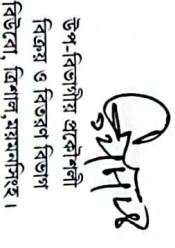 উপ-বিভাগীয় প্রকৌশলী
বিক্রয় ও বিতরণ বিভাগ
বিউবো, ত্রিশাল, ময়মনসিংহ।